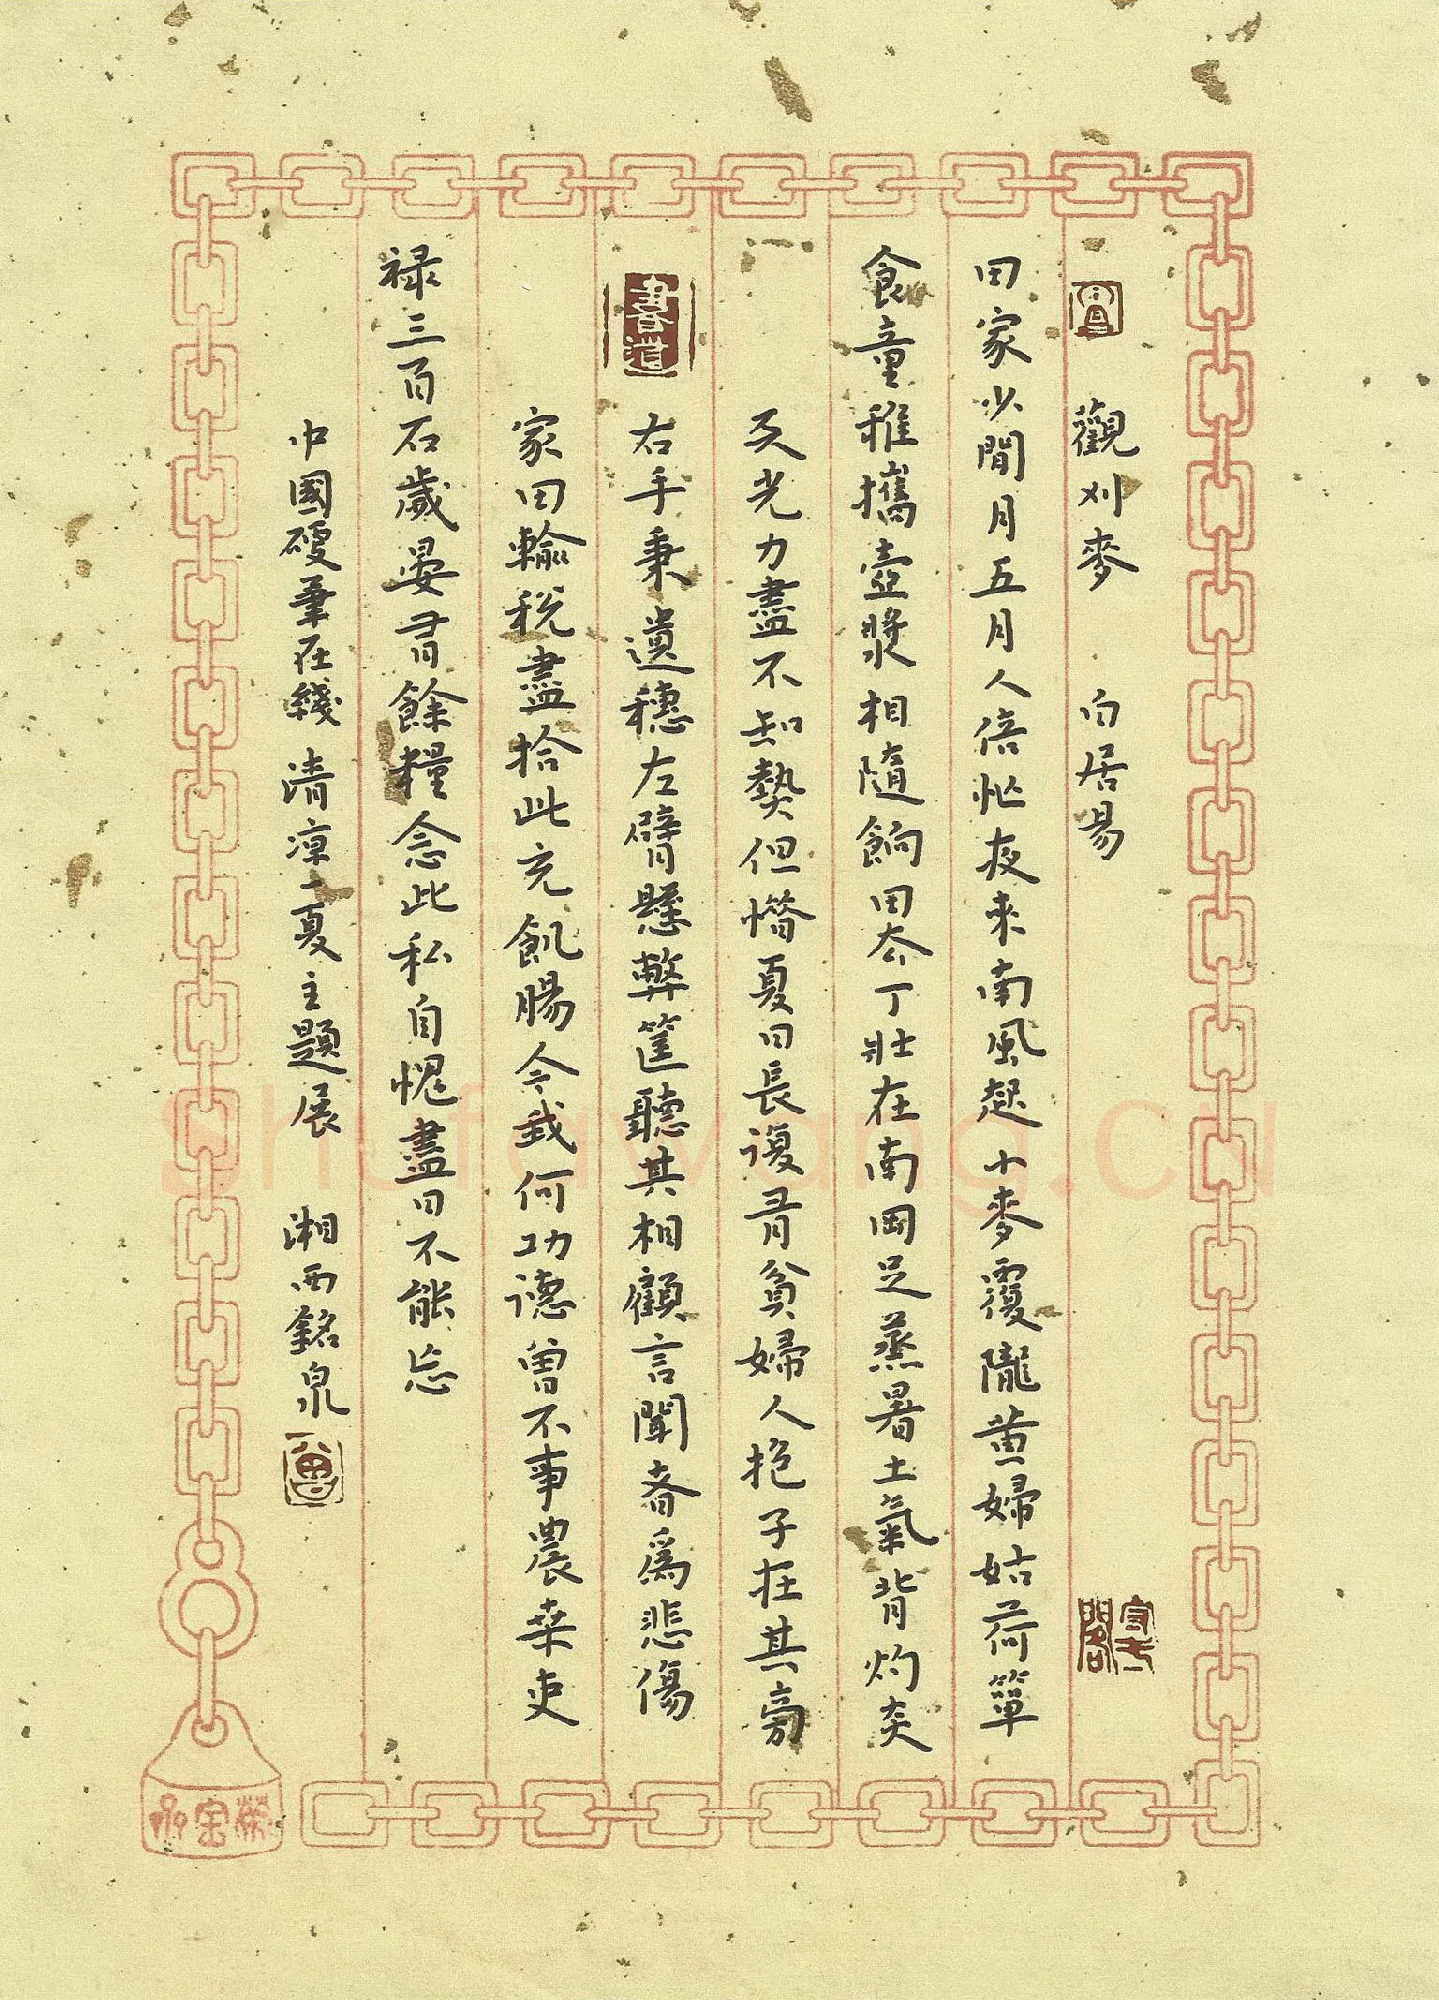 觀刈麥 白居易
田家少閒月五月人倍忙夜來南風起小麥覆隴黃婦姑荷簞
食童稚攜壺漿相隨餉田去丁壯在南岡足蒸暑土氣背灼炎
天光力盡不知熱但惜夏日長復有貧婦人抱子在其旁
書道
右手秉遺穗左臂懸弊筐聽其相顧言聞者爲悲傷
家田輸稅盡拾此充飢腸今我何功德曾不事農桑吏
禄三百石歲晏有餘糧念此私自愧盡日不能忘
中國硬筆在綫 清凉一夏主題展 湘西銘泉
shufawang.cn